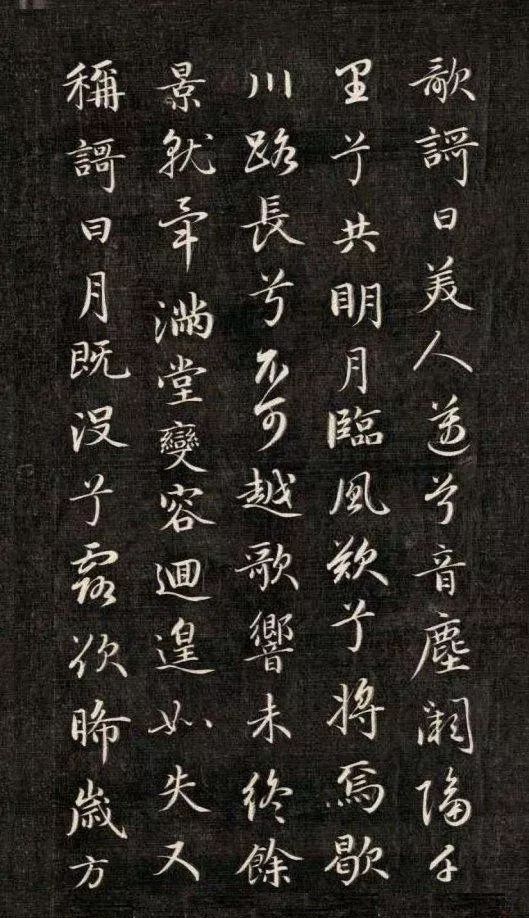 歌謌曰美人邁兮音塵闕隔千
里兮共眀月臨風歎兮將焉歇
川路長兮不可越歌響未終餘
景就畢滿堂變容迴遑如失又
稱謌曰月既沒兮露欲晞歲方